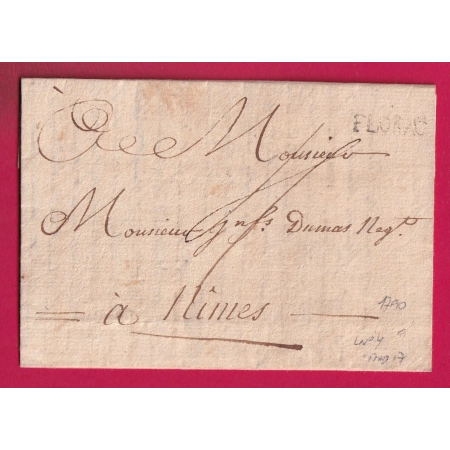 FLORAC
À Monsieur
Monsieur Jn. fs. Dumas Negt.
à Nîmes
1790
LN° 4
ind 17